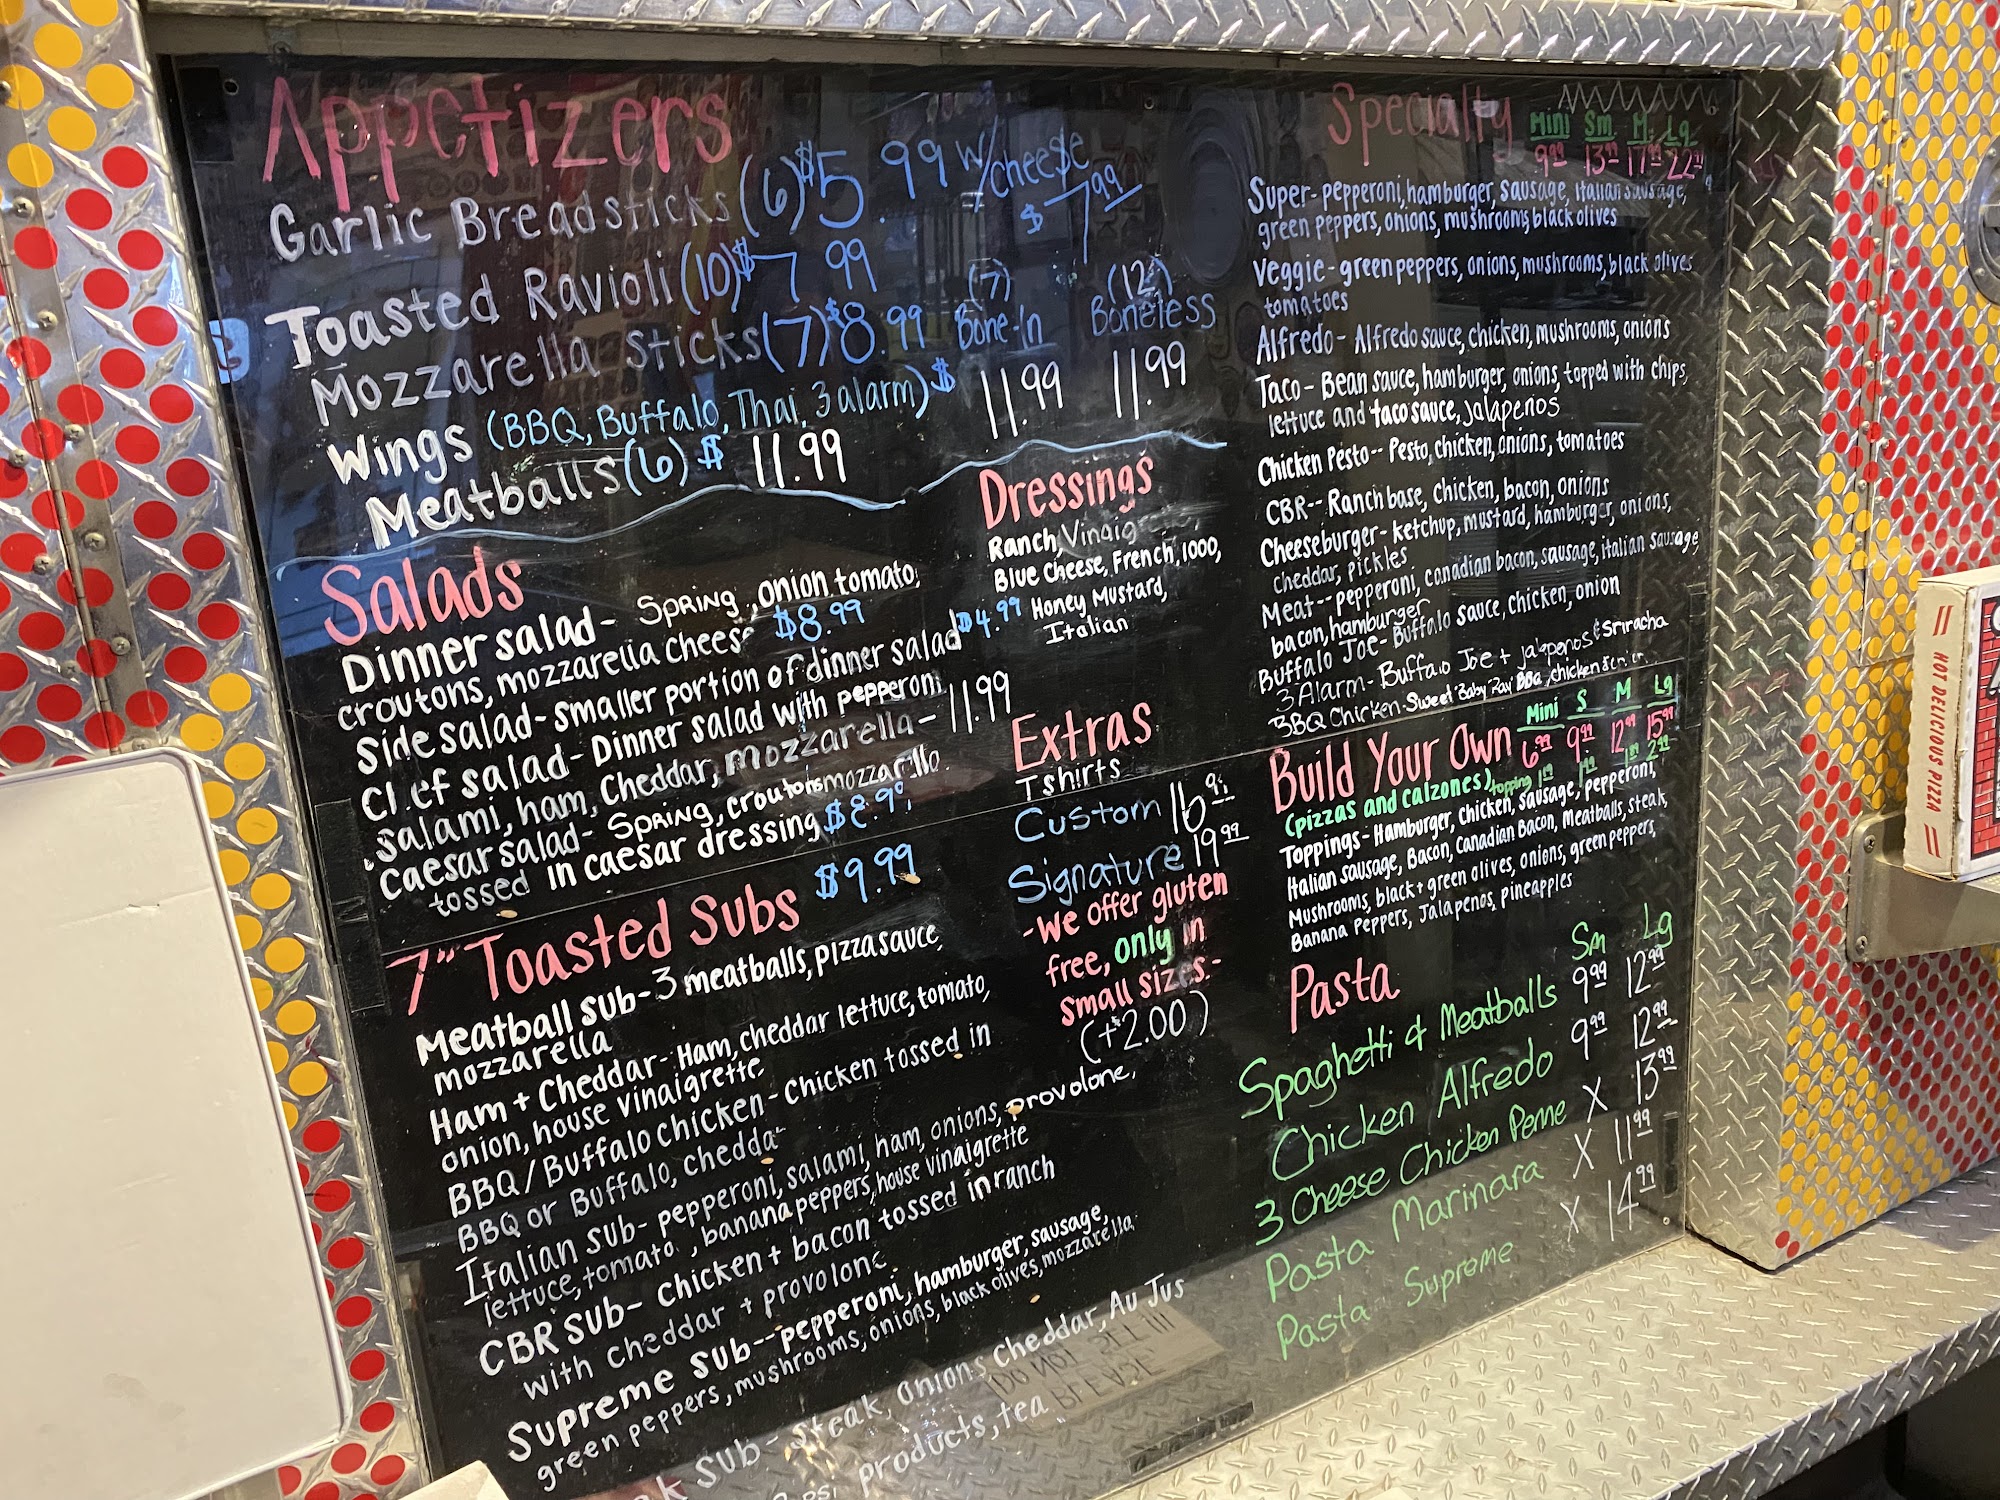 Appetizers
Garlic Breadsticks (6) $5.99 w/cheese $7.99
Toasted Ravioli (10) $7.99
Mozzarella Sticks (7) $8.99
(7) Bone-In
(12) Boneless
Wings (BBQ, Buffalo, Thai, 3 alarm) $ 11.99 11.99
Meatballs (6) $ 11.99
Salads
Dinner salad- Spring, onion tomato,
croutons, mozzarella cheese $8.99
Side salad- smaller portion of dinner salad $4.99
salad- Dinner salad with pepperoni
salami, ham, cheddar, mozzarella - 11.99
caesar salad- Spring, croutons mozzarella
tossed in caesar dressing $8.99
Dressings
Ranch,
Blue Cheese, French, 1000,
Honey Mustard,
Italian
7" Toasted Subs $9.99
Meatball Sub- 3 meatballs, pizza sauce,
mozzarella
Ham + Cheddar- Ham, cheddar lettuce, tomato,
onion, house vinaigrette
BBQ/Buffalo chicken- chicken tossed in
BBQ or Buffalo, cheddar
Italian Sub- pepperoni, salami, ham, onions, provolone,
lettuce, tomato, banana peppers, house vinaigrette
CBR SUB- chicken + bacon tossed in ranch
with cheddar + provolone
Supreme Sub-- pepperoni, hamburger, sausage,
green peppers, mushrooms, onions, black olives, mozzarella
Sub- Steak, onions cheddar, Au Jus
products, tea
DO NOT
Extras
T shirts
Custom 16
Signature 19.99
-We offer gluten
free, only in
small sizes.-
(+2.00)
Specialty
Mini Sm. M. Lg
9.99 13.99 17.99 22
Super- pepperoni, hamburger, sausage, italian sausage,
green peppers, onions, mushrooms, black olives
Veggie- green peppers, onions, mushrooms, black olives
tomatoes
Alfredo- Alfredo sauce, chicken, mushrooms, onions
Taco- Bean sauce, hamburger, onions, topped with chips,
lettuce and taco sauce, jalapenos
Chicken Pesto-- Pesto, chicken, onions, tomatoes
CBR-- Ranch base, chicken, bacon, onions
Cheeseburger- ketchup, mustard, hamburger, onions,
cheddar, pickles
Meat-- pepperoni, canadian bacon, sausage, italian sausage,
bacon, hamburger
Buffalo Joe- Buffalo sauce, chicken, onion
3 Alarm- Buffalo Joe + jalapenos & Sriracha
BBQ Chicken- Sweet Baby Ray BBQ, chicken
Build Your Own
Mini S M Lg
6.99 9.99 12.99 15.99
(pizzas and calzones) topping
Toppings- Hamburger, chicken, sausage, pepperoni,
Italian sausage, Bacon, Canadian Bacon, Meatballs, steak,
Mushrooms, black + green olives, onions, green peppers,
Banana Peppers, Jalapenos, pineapples
Pasta
Sm Lg
Spaghetti & Meatballs 9.99 12.99
Chicken Alfredo 9.99 12.99
3 Cheese Chicken Penne X 13.99
Pasta Marinara X 11.99
Pasta Supreme X 14.99
HOT DELICIOUS PIZZA